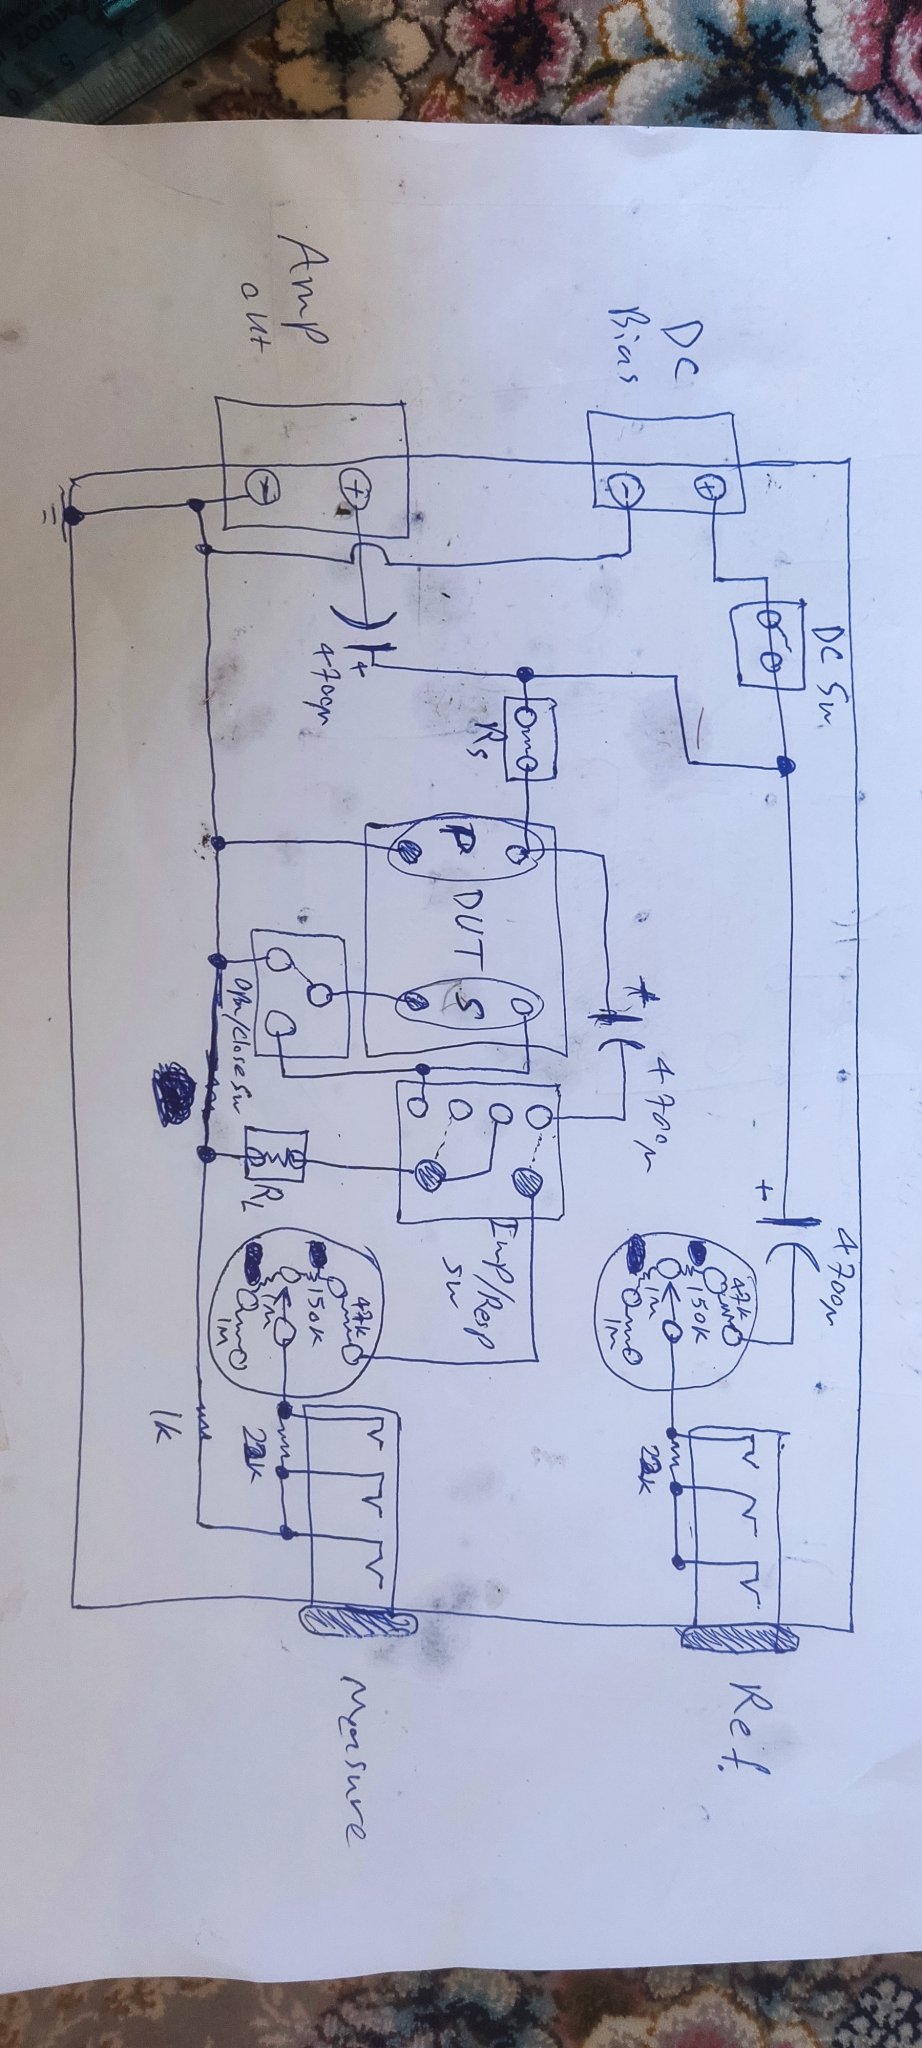 DC
Bias
+
-
DC Sw
Amp
out
+
-
+
4700µ
Rs
P
DUT
S
*
4700µ
+
4700µ
opn/close sw
Imp/Resp
sw
RL
47k
150k
1m
1m
22k
Ref.
47k
150k
1m
1m
22k
1k
Measure